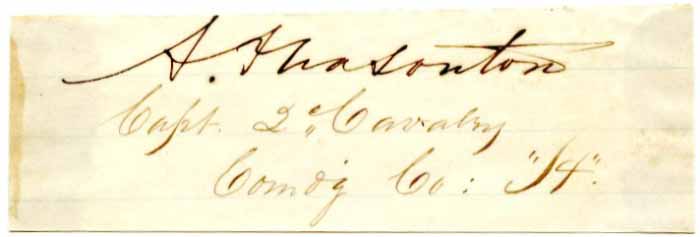 A. Pleasonton
Capt. 2d. Cavalry
Comdg Co: "H".